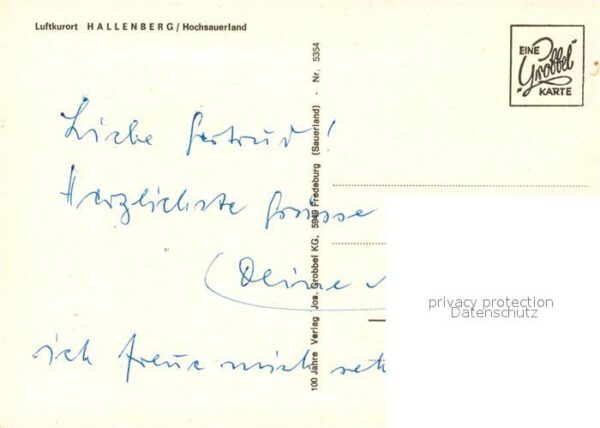 Luftkurort HALLENBERG / Hochsauerland
EINE
"Grobbel"
KARTE
100 Jahre Verlag Jos. Grobbel KG, 5949 Fredeburg (Sauerland) - Nr. 5354
Liebe Gertrud!
Herzlichste Grüsse
(Deine
ich freue mich
privacy protection
Datenschutz